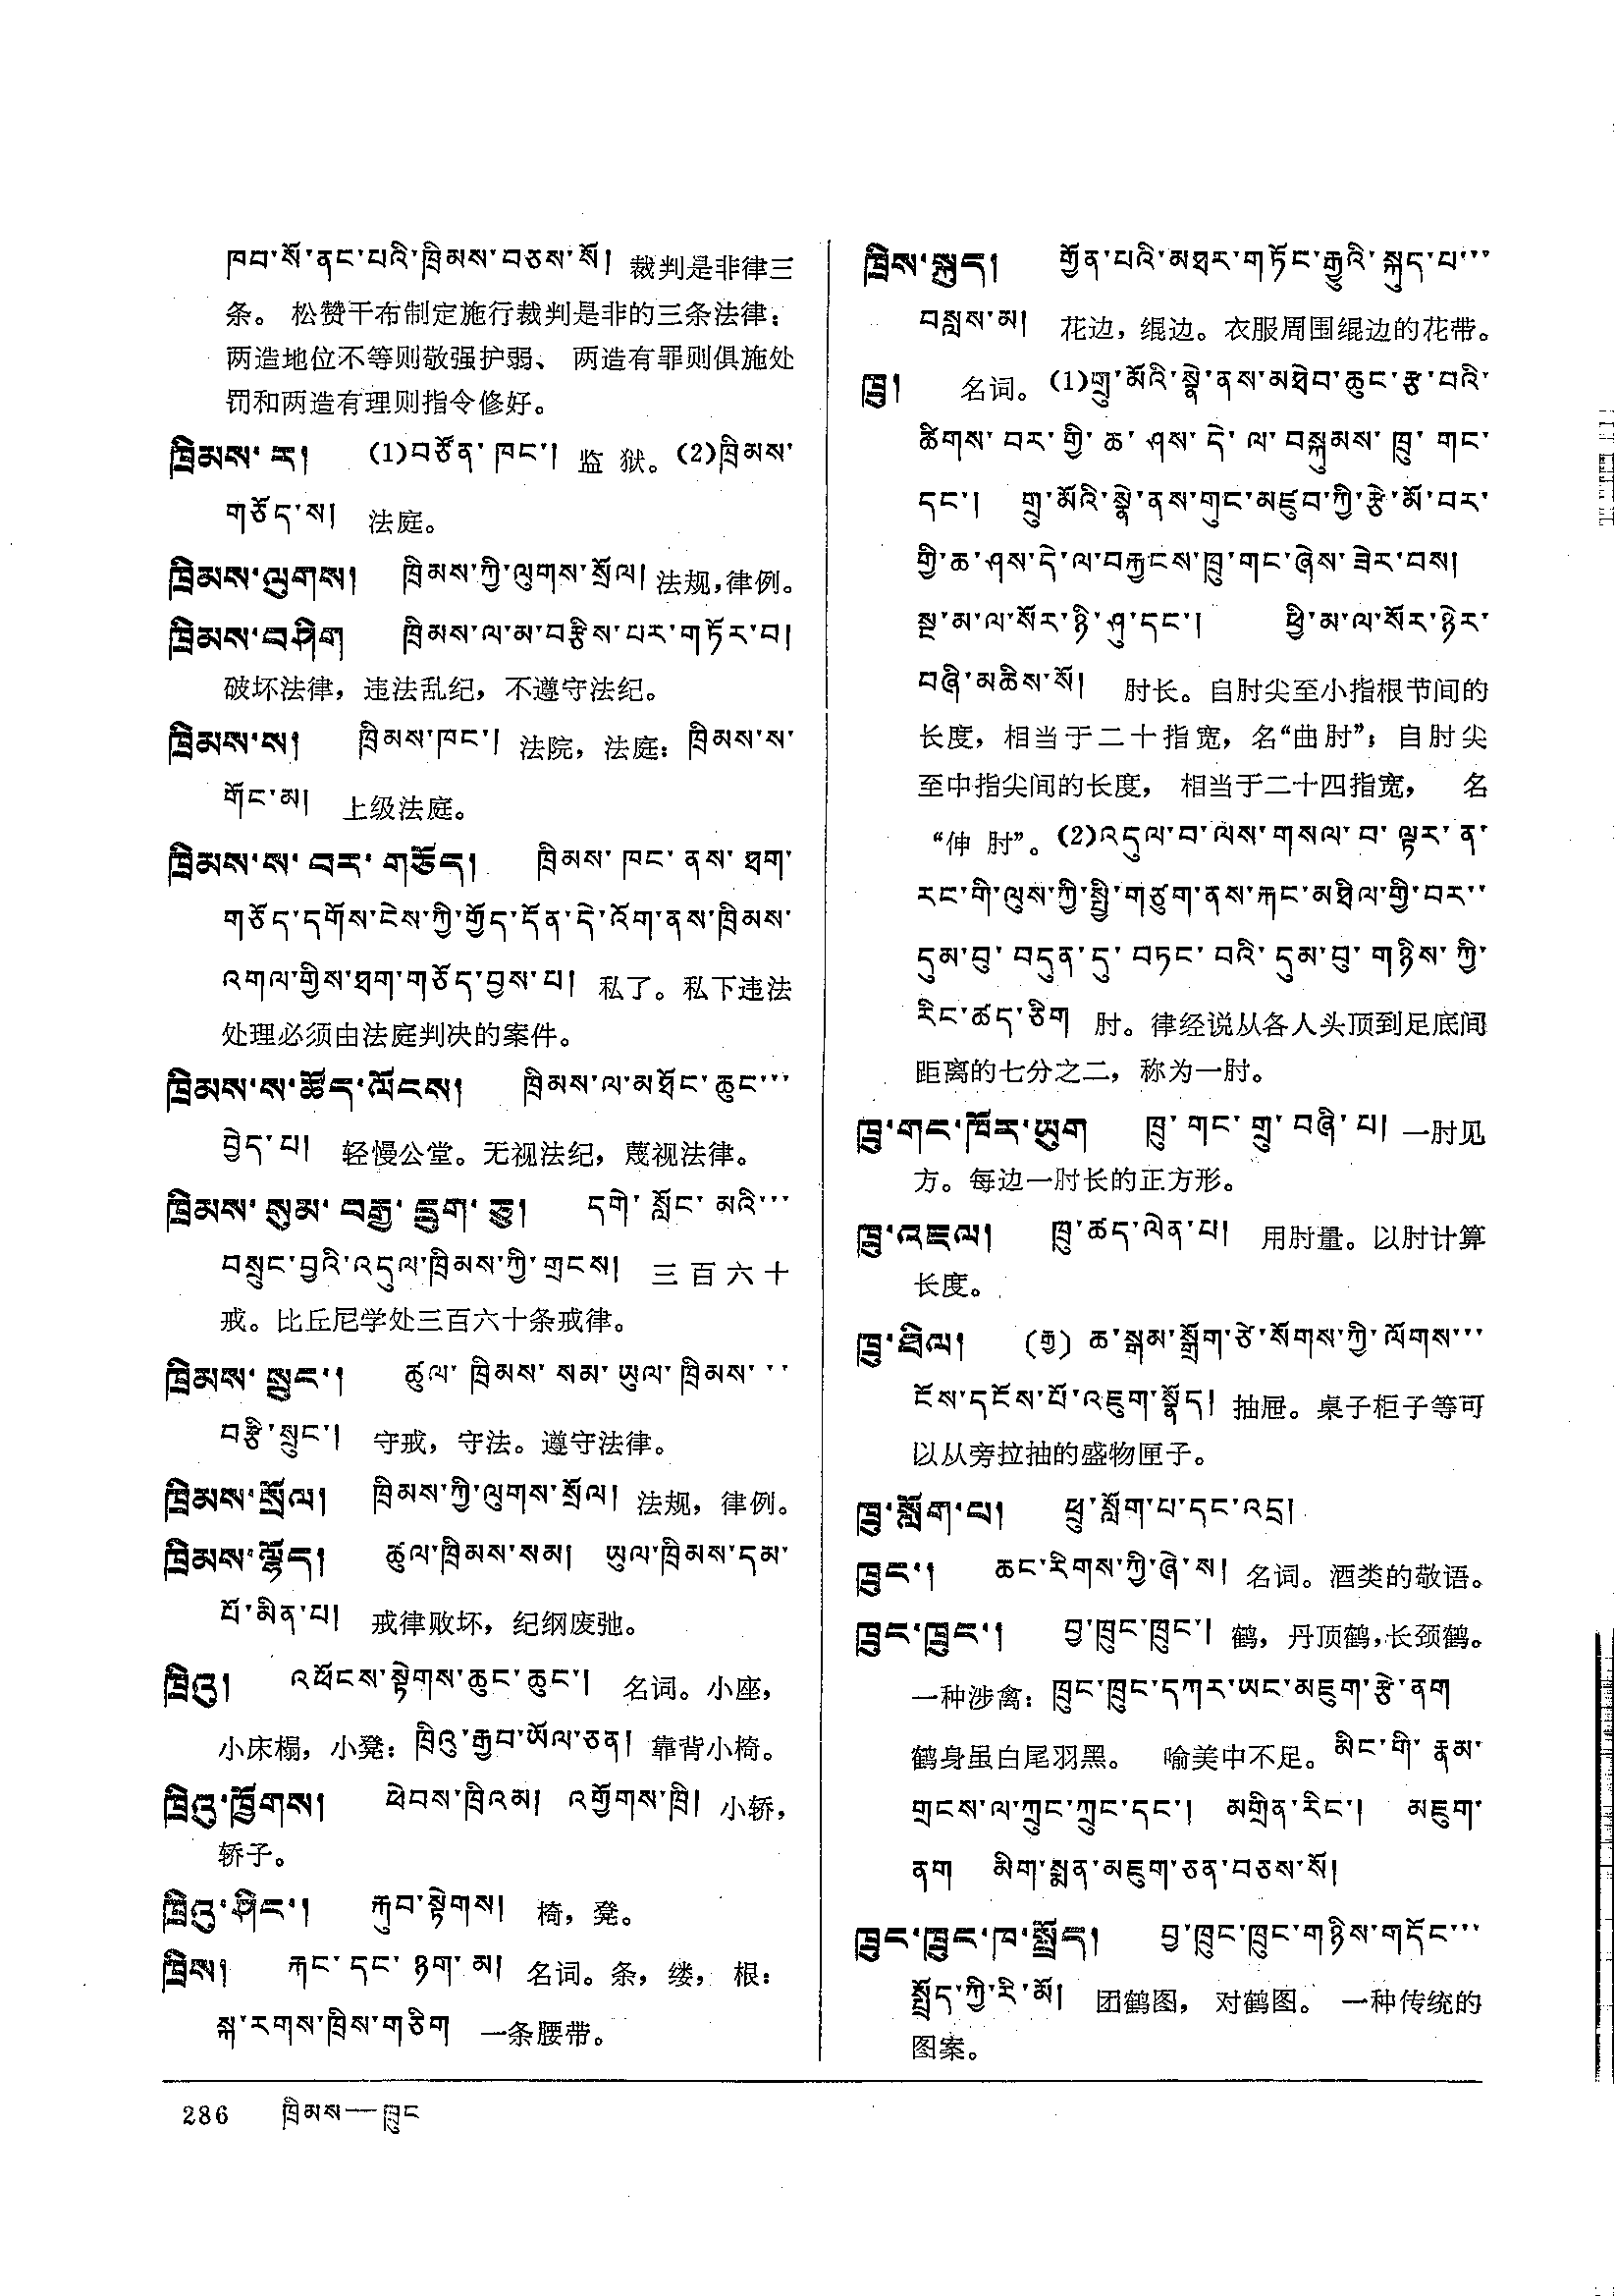 ཁབ་སོ་ནང་པའི་ཁྲིམས་བཅས་སོ། 裁判是非律三
条。 松赞干布制定施行裁判是非的三条法律：
两造地位不等则敬强护弱、 两造有罪则俱施处
罚和两造有理则指令修好。
ཁྲིམས་ར། (1)བཙོན་ཁང་། 监狱。(2)ཁྲིམས་
གཅོད་ས། 法庭。
ཁྲིམས་ལུགས། ཁྲིམས་ཀྱི་ལུགས་སྲོལ། 法规，律例。
ཁྲིམས་བཤིག ཁྲིམས་ལ་མ་བརྩིས་པར་གཏོར་བ།
破坏法律，违法乱纪，不遵守法纪。
ཁྲིམས་ས། ཁྲིམས་ཁང་། 法院，法庭：ཁྲིམས་ས་
གོང་མ། 上级法庭。
ཁྲིམས་ས་བར་གཅོད། ཁྲིམས་ཁང་ནས་ཐག་
གཅོད་དགོས་ངེས་ཀྱི་གྱོད་དོན་དེ་འོག་ནས་ཁྲིམས་
འགལ་གྱིས་ཐག་གཅོད་བྱས་པ། 私了。私下违法
处理必须由法庭判决的案件。
ཁྲིམས་ས་ཚོད་ལོངས། ཁྲིམས་ལ་མཐོང་ཆུང་…
བྱེད་པ། 轻慢公堂。无视法纪，蔑视法律。
ཁྲིམས་སུམ་བརྒྱ་དྲུག་ཅུ། དགེ་སློང་མའི་…
བསྲུང་བྱའི་འདུལ་ཁྲིམས་ཀྱི་གྲངས། 三百六十
戒。比丘尼学处三百六十条戒律。
ཁྲིམས་སྲུང་། ཚུལ་ཁྲིམས་སམ་ཡུལ་ཁྲིམས་…
བརྩི་སྲུང་། 守戒，守法。遵守法律。
ཁྲིམས་སྲོལ། ཁྲིམས་ཀྱི་ལུགས་སྲོལ། 法规，律例。
ཁྲིམས་ལྷོད། ཚུལ་ཁྲིམས་སམ། ཡུལ་ཁྲིམས་དམ་
པོ་མིན་པ། 戒律败坏，纪纲废弛。
ཁྲིའུ། འཕོངས་སྟེགས་ཆུང་ཆུང་། 名词。小座，
小床榻，小凳：ཁྲིའུ་རྒྱབ་ཡོལ་ཅན། 靠背小椅。
ཁྲིའུ་ཁྱོགས། ཕེབས་ཁྲིའམ། འགྱོགས་ཁྲི། 小轿，
轿子。
ཁྲིའུ་ཤིང་། རྐུབ་སྟེགས། 椅，凳。
ཁྲིས། རྐང་དང་ཉག་མ། 名词。条，缕， 根：
སྐ་རགས་ཁྲིས་གཅིག 一条腰带。
ཁྲིས་སྐུད། གྱོན་པའི་མཐར་གཏོང་རྒྱུའི་སྐུད་པ་…
བསླས་མ། 花边，绲边。衣服周围绲边的花带。
ཁྲུ། 名词。(1)གྲུ་མོའི་སྣེ་ནས་མཐེབ་ཆུང་རྩ་བའི་
ཚིགས་བར་གྱི་ཆ་ཤས་དེ་ལ་བསྐུམས་ཁྲུ་གང་
དང་། གྲུ་མོའི་སྣེ་ནས་གུང་མཛུབ་ཀྱི་རྩེ་མོ་བར་
གྱི་ཆ་ཤས་དེ་ལ་བརྐྱངས་ཁྲུ་གང་ཞེས་ཟེར་བས།
སྔ་མ་ལ་སོར་ཉི་ཤུ་དང་། ཕྱི་མ་ལ་སོར་ཉེར་
བཞི་མཆིས་སོ། 肘长。自肘尖至小指根节间的
长度，相当于二十指宽，名“曲肘”；自肘尖
至中指尖间的长度， 相当于二十四指宽， 名
“伸肘”。(2)འདུལ་བ་ལས་གསལ་བ་ལྟར་ན་
རང་གི་ལུས་ཀྱི་སྤྱི་གཙུག་ནས་རྐང་མཐིལ་གྱི་བར་…
དུམ་བུ་བདུན་དུ་བཏང་བའི་དུམ་བུ་གཉིས་ཀྱི་
རིང་ཚད་ཅིག 肘。律经说从各人头顶到足底间
距离的七分之二，称为一肘。
ཁྲུ་གང་ཁོར་ཡུག ཁྲུ་གང་གྲུ་བཞི་པ། 一肘见
方。每边一肘长的正方形。
ཁྲུ་འཇལ། ཁྲུ་ཚད་ལེན་པ། 用肘量。以肘计算
长度。
ཁྲུ་ཤིལ། (རྒྱ) ཆ་སྒམ་སྒྲོག་ཙེ་སོགས་ཀྱི་ལོགས་…
ངོས་དངོས་པོ་འཇུག་སྣོད། 抽屉。桌子柜子等可
以从旁拉抽的盛物匣子。
ཁྲུ་སློག་པ། ཕྲུ་སློག་པ་དང་འདྲ།
ཁྲུང་། ཆང་རིགས་ཀྱི་ཞེ་ས། 名词。酒类的敬语。
ཁྲུང་ཁྲུང་། བྱ་ཁྲུང་ཁྲུང་། 鹤，丹顶鹤，长颈鹤。
一种涉禽：ཁྲུང་ཁྲུང་དཀར་ཡང་མཇུག་རྩེ་ནག
鹤身虽白尾羽黑。 喻美中不足。མིང་གི་རྣམ་
གྲངས་ལ་ཀྲུང་ཀྲུང་དང་། མགྲིན་རིང་། མཇུག་
ནག མིག་སྨན་མཇུག་ཅན་བཅས་སོ།
ཁྲུང་ཁྲུང་ཁ་སྤྲོད། བྱ་ཁྲུང་ཁྲུང་གཉིས་གདོང་…
སྤྲོད་ཀྱི་རི་མོ། 团鹤图， 对鹤图。 一种传统的
图案。
286 ཁྲིམས—ཁྲུང